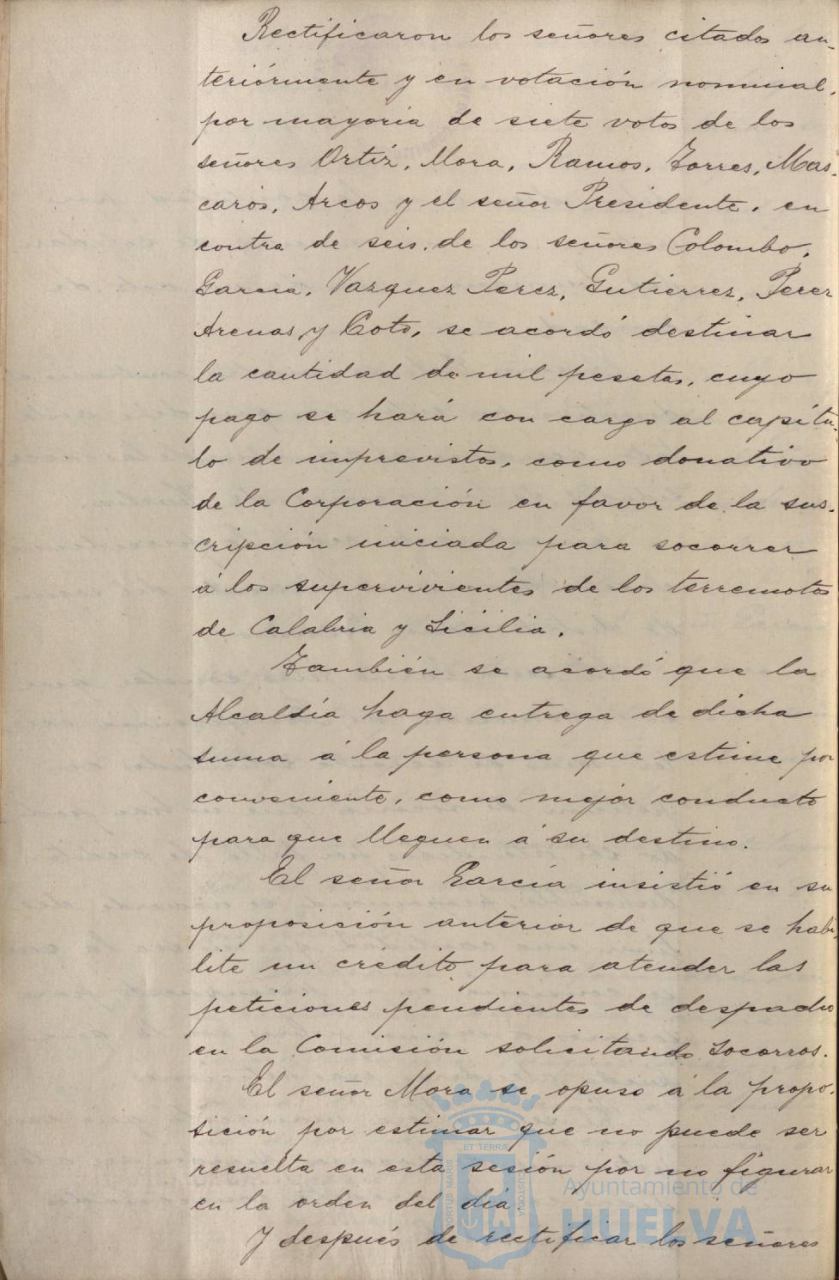 Rectificaron los señores citados an-
teriórmente y en votación nominal,
por mayoria de siete votos de los
señores Ortíz, Mora, Ramos, Torres, Mas-
carós, Arcos y el señor Presidente, en
contra de seis, de los señores Colombo,
Garcia, Vazquez Perez, Gutierrez, Perez
Arenas y Coto, se acordó destinar
la cantidad de mil pesetas, cuyo
pago se hará con cargo al capítu-
lo de imprevistos, como donativo
de la Corporación en favor de la sus-
cripción iniciada para socorrer
á los supervivientes de los terremotos
de Calabria y Sicilia.
También se acordó que la
Alcaldía haga entrega de dicha
suma á la persona que estime por
conveniente, como mejor conducto
para que lleguen á su destino.
El señor García insistió en su
proposición anterior de que se habi
lite un crédito para atender las
peticiones pendientes de despacho
en la Comisión solicitando socorros.
El señor Mora se opuso á la propo-
sición por estimar que no puede ser
resuelta en esta sesión por no figurar
en la orden del día
Y después de rectificar los señores
PORTUS MARIS
ET TERRÆ
CUSTODIA
Ayuntamiento de
HUELVA